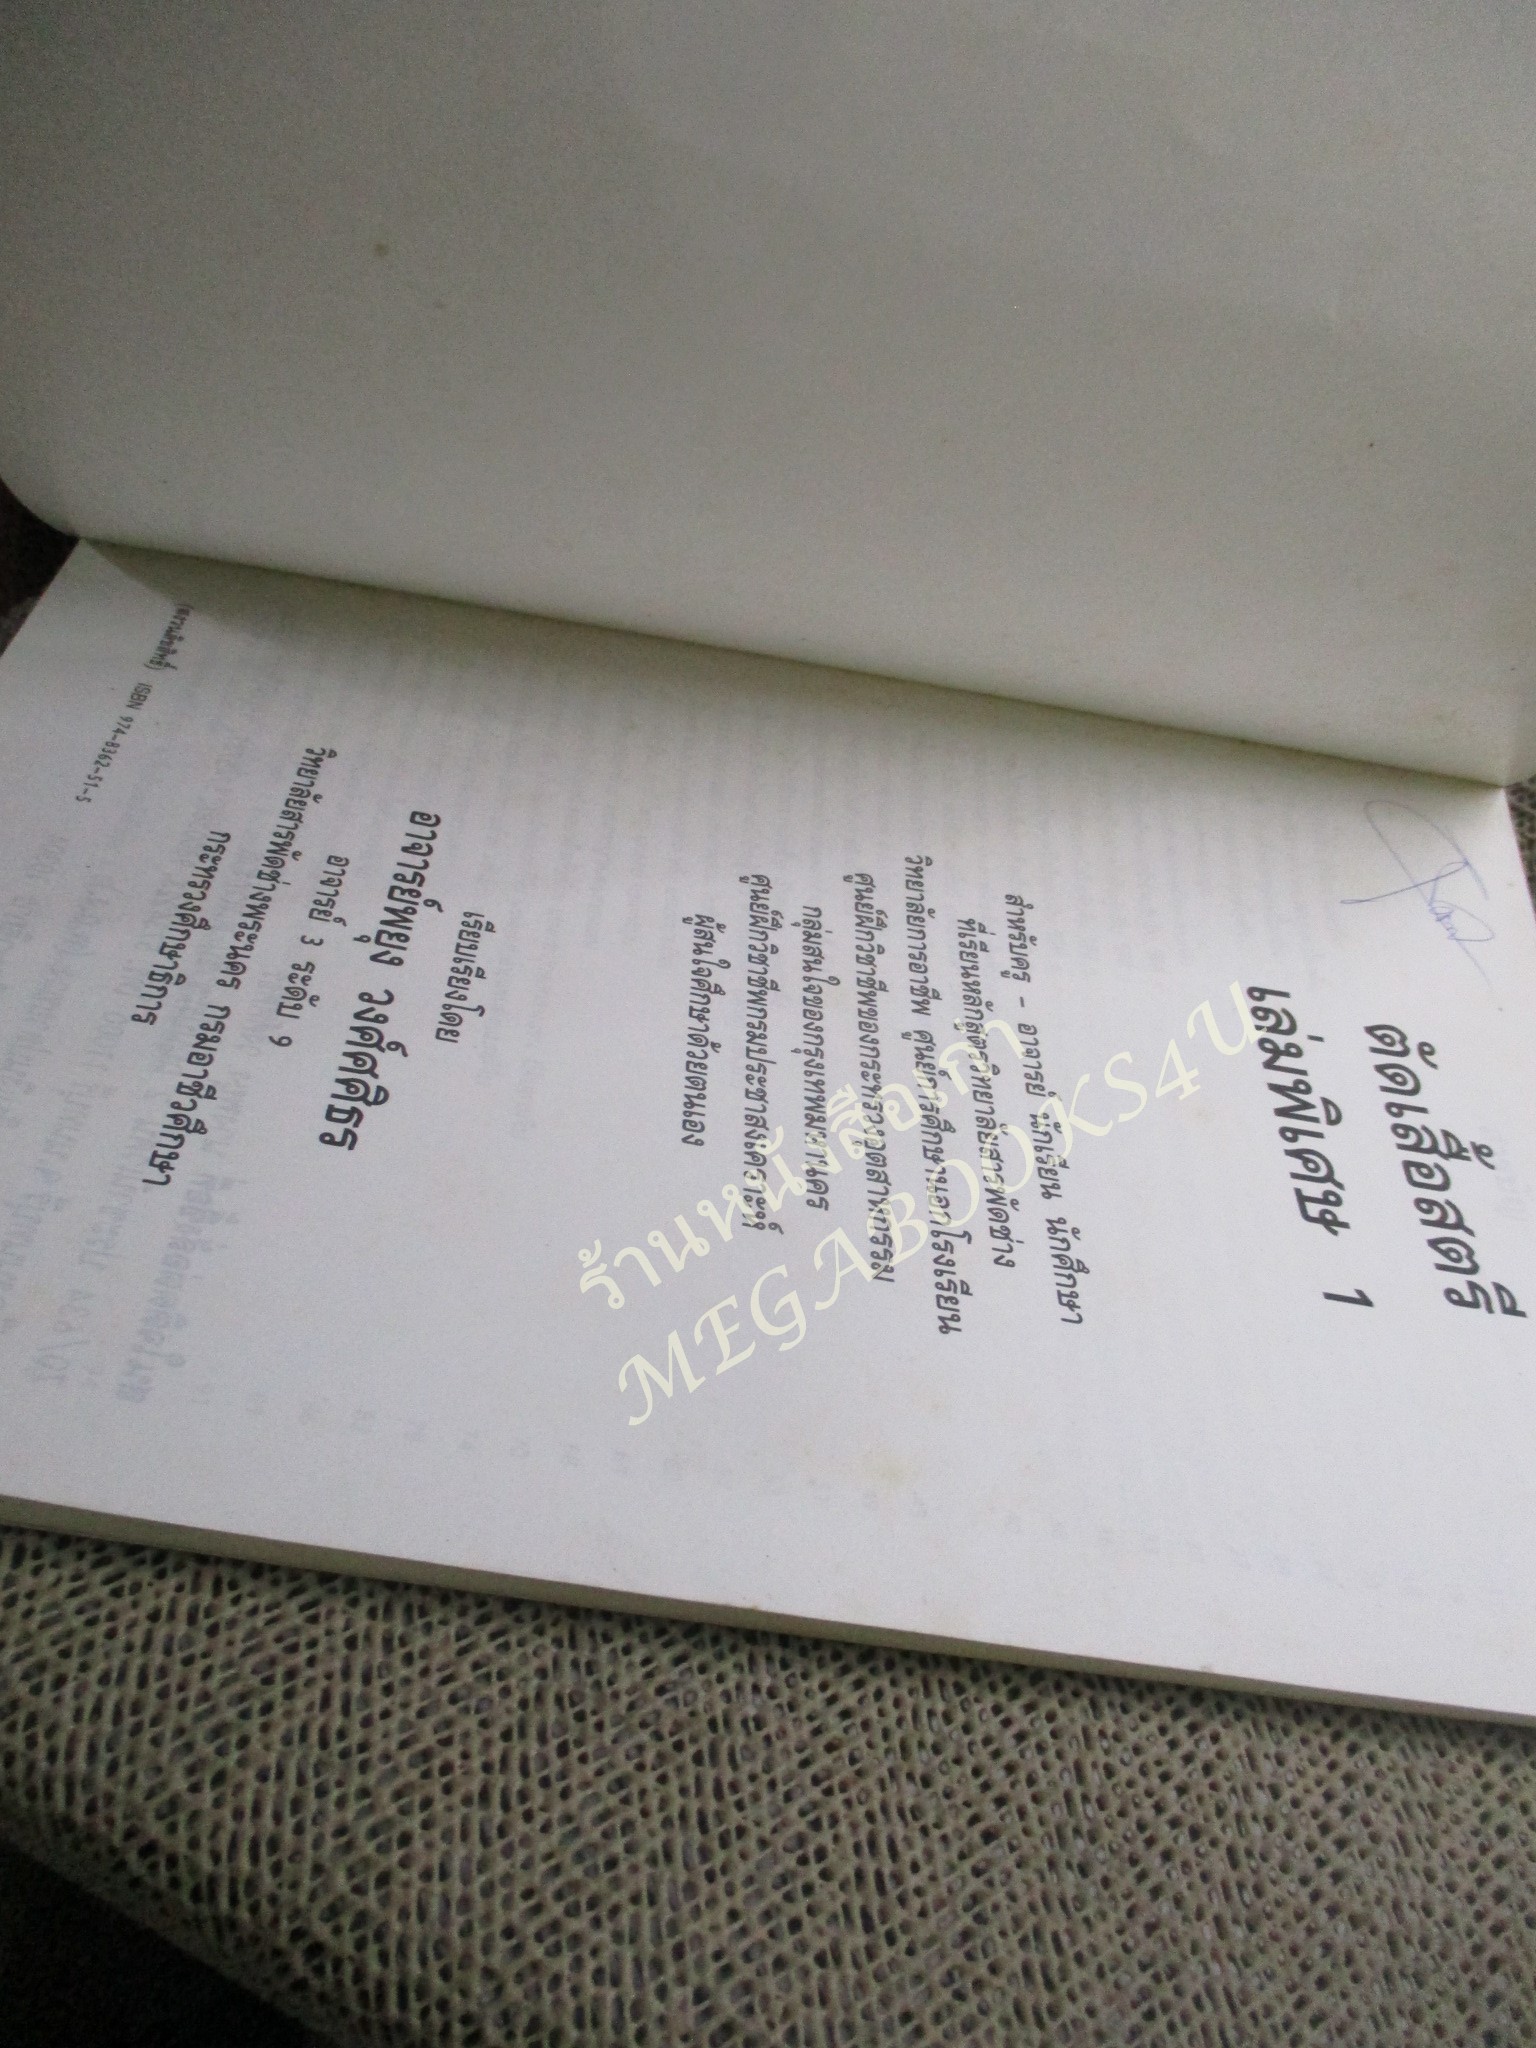 ตัดเสื้อสตรี
เล่มพิเศษ 1
สำหรับครู - อาจารย์ นักเรียน นักศึกษา
ที่เรียนหลักสูตรวิทยาลัยสารพัดช่าง
วิทยาลัยการอาชีพ ศูนย์การศึกษานอกโรงเรียน
ศูนย์ฝึกวิชาชีพของกระทรวงอุตสาหกรรม
กลุ่มสนใจของกรุงเทพมหานคร
ศูนย์ฝึกวิชาชีพกรมประชาสงเคราะห์
ผู้สนใจศึกษาด้วยตนเอง
เรียบเรียงโดย
อาจารย์พยุง วงศ์ศดิธร
อาจารย์ 3 ระดับ 9
วิทยาลัยสารพัดช่างพระนคร กรมอาชีวศึกษา
กระทรวงศึกษาธิการ
(สงวนลิขสิทธิ์) ISBN 974-8362-51-5
ร้านหนังสือเก่า
MEGABOOKS4U